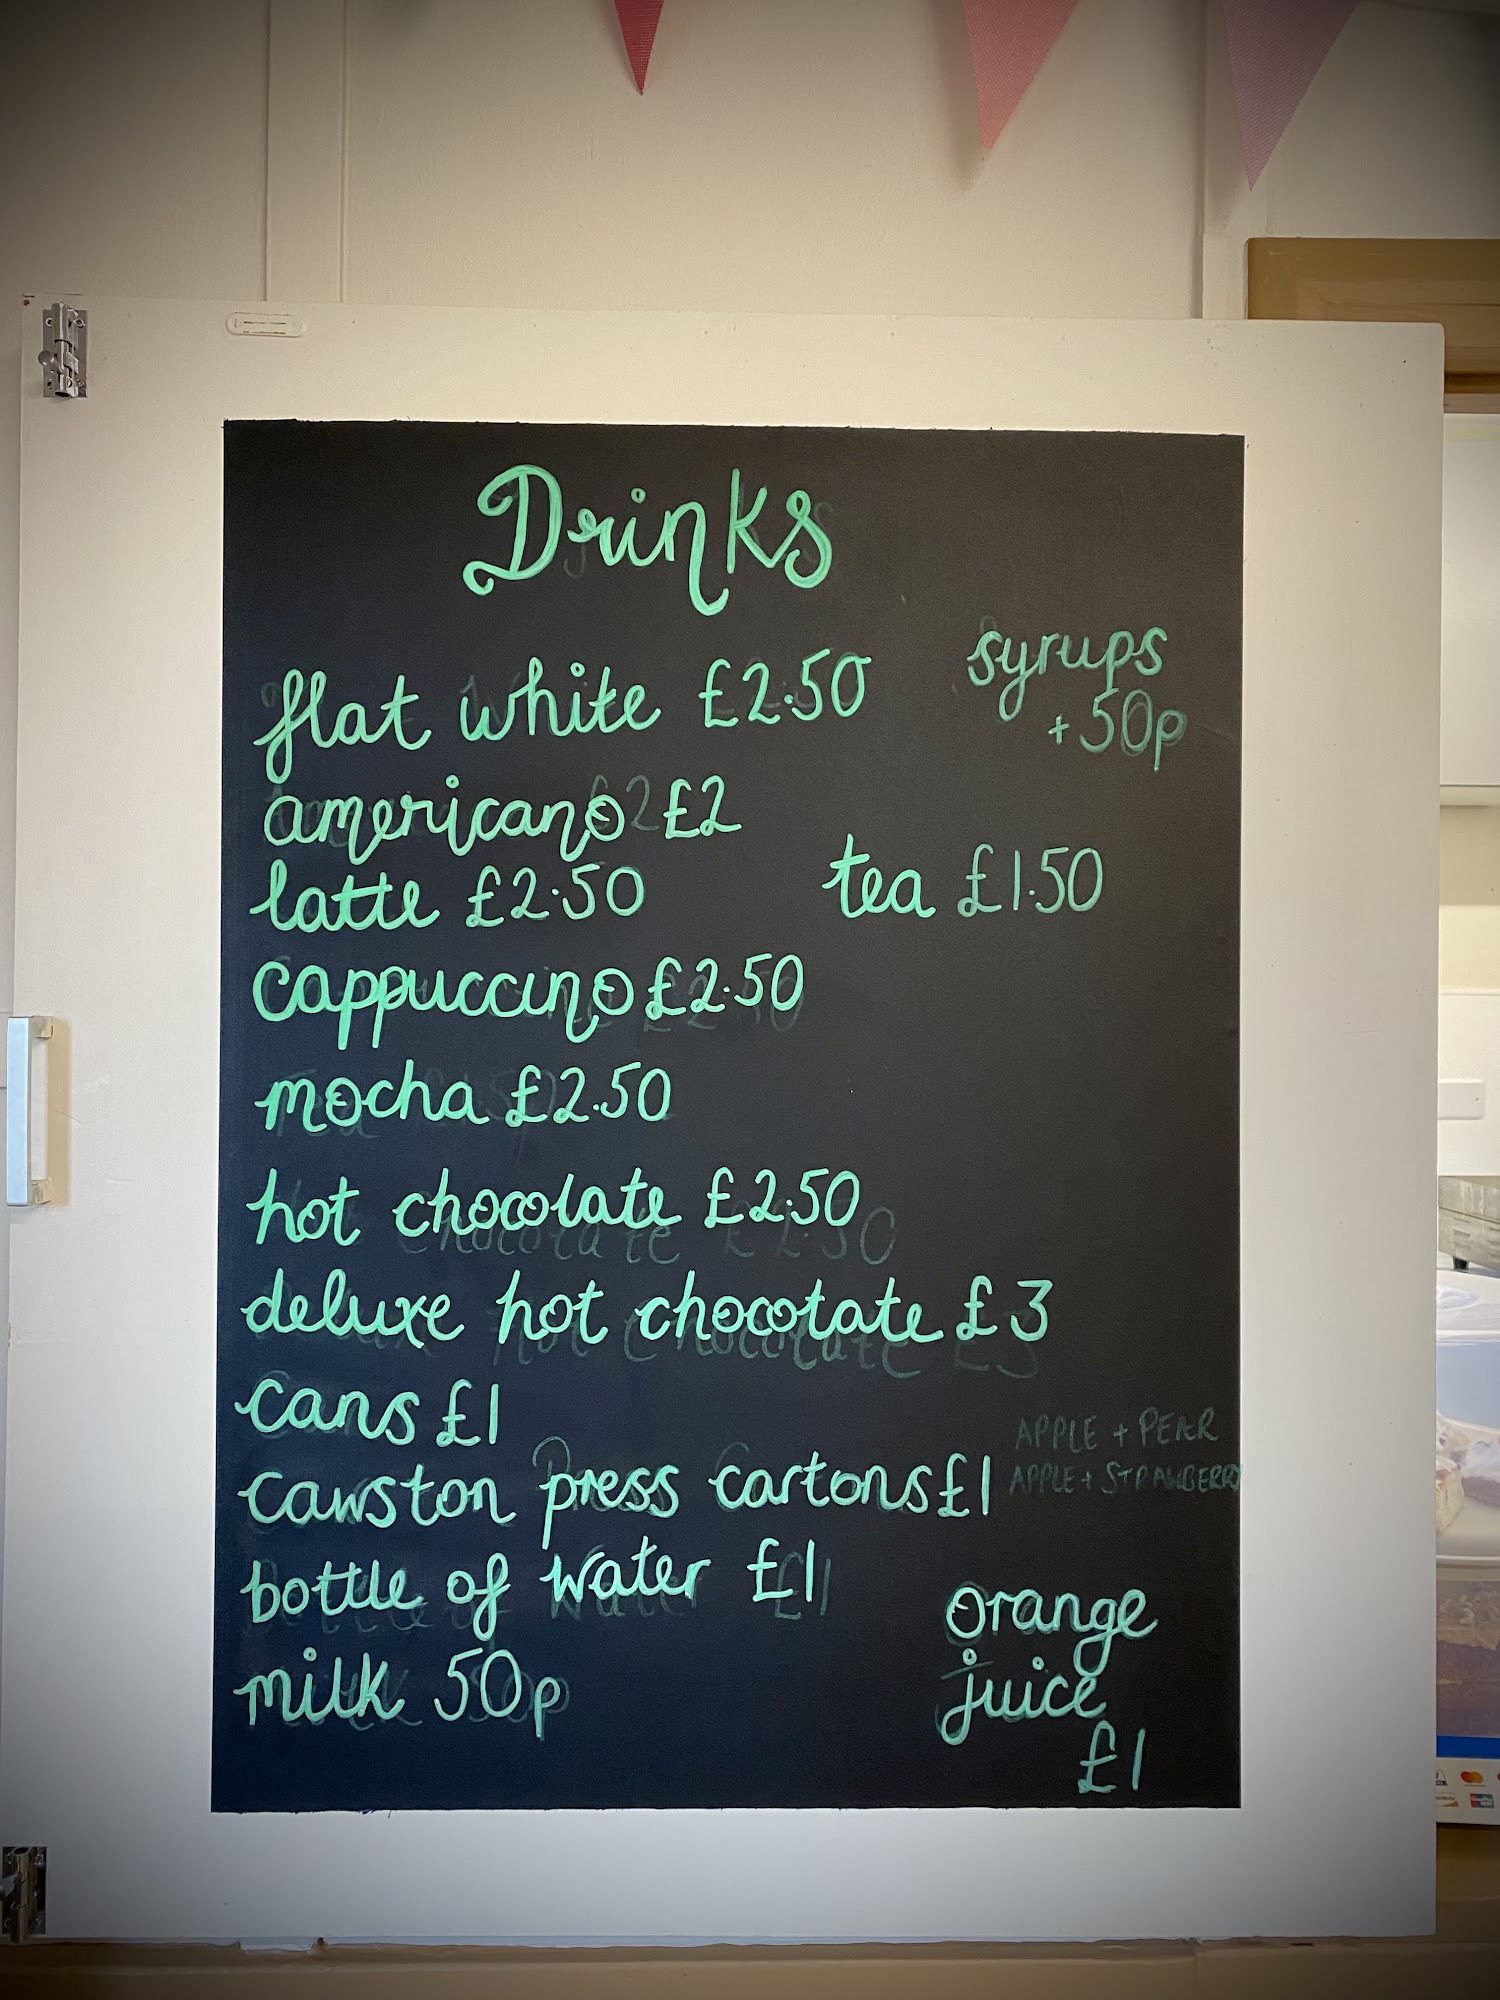 Drinks
flat white £2.50
syrups
+50p
americano £2
latte £2.50
tea £1.50
cappuccino £2.50
mocha £2.50
hot chocolate £2.50
deluxe hot chocolate £3
cans £1
cawston press cartons £1
APPLE + PEAR
APPLE + STRAWBERRY
bottle of water £1
milk 50p
orange
juice
£1